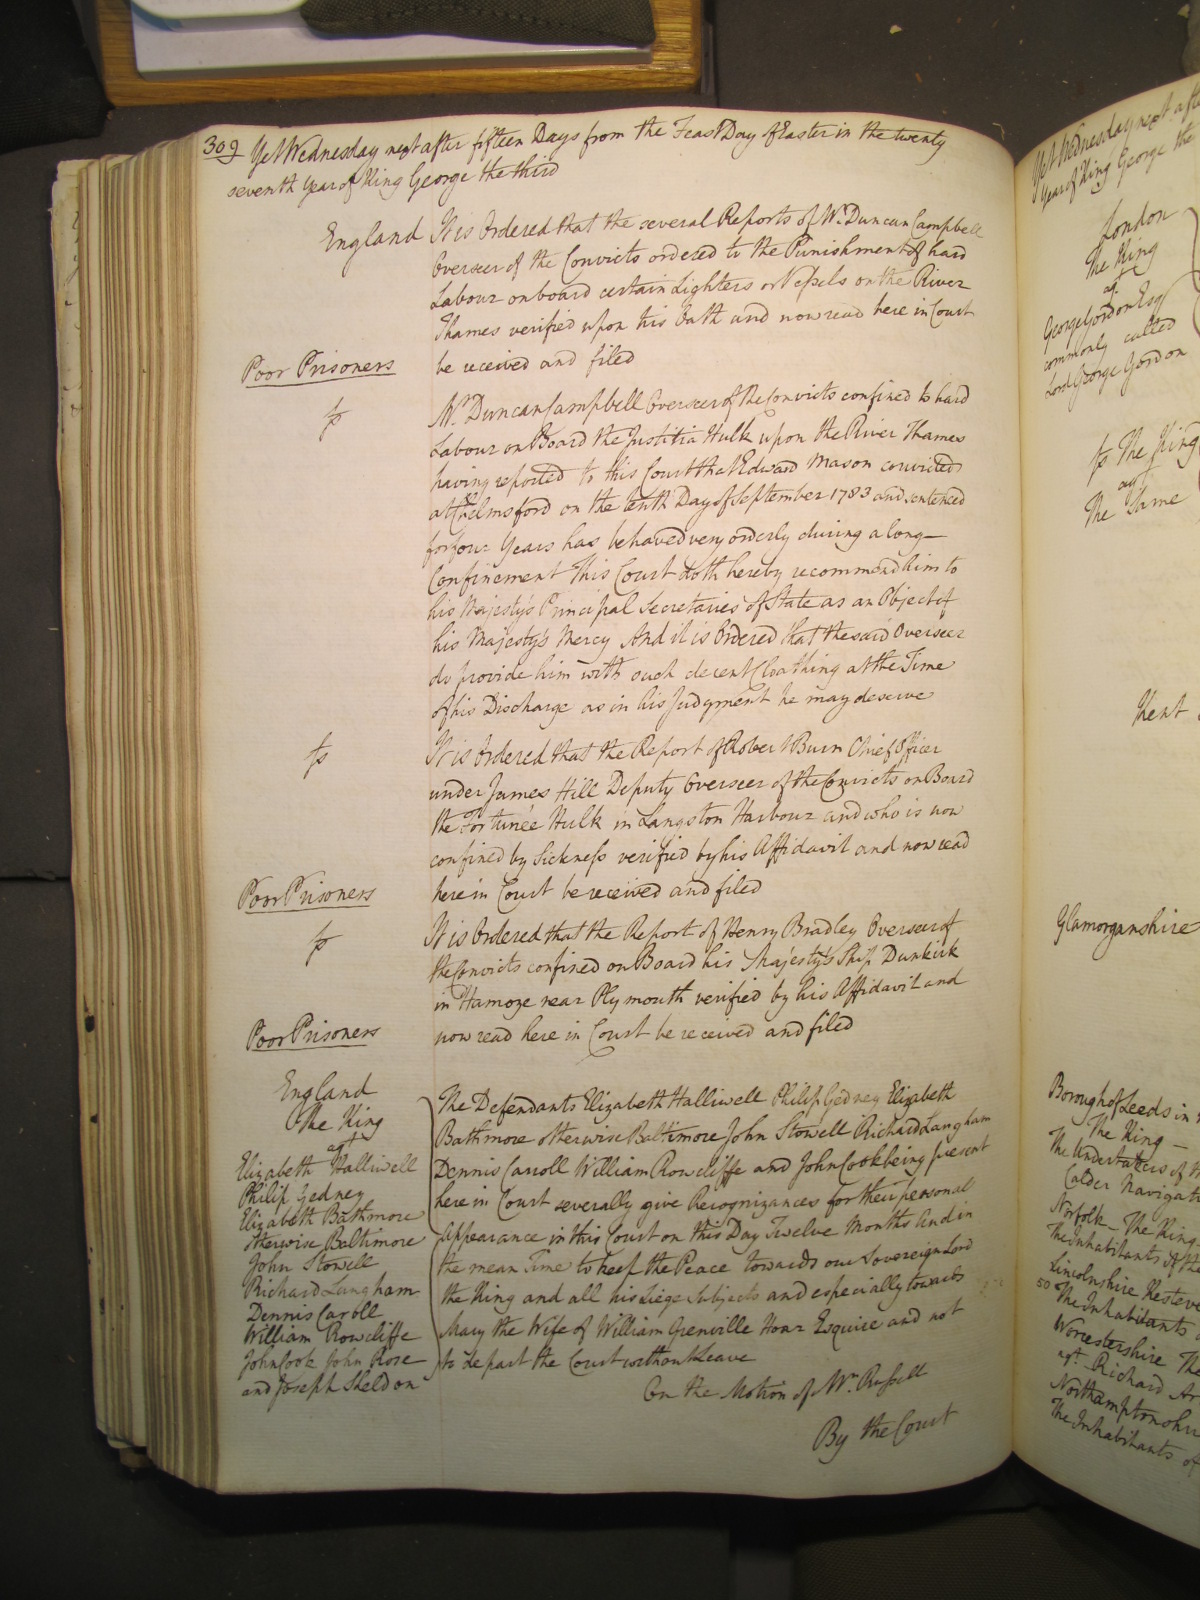 309 Yet Wednesday next after fifteen Days from the Feast Day of Easter in the twenty
seventh Year of King George the third
England It is Ordered that the several Reports of Mr. Duncan Campbell
Overseer of the Convicts ordered to the Punishment of hard
Labour on board certain Lighters or Vessels on the River
Thames verified upon his Oath and now read here in Court
be received and filed
Poor Prisoners
Mr. Duncan Campbell Overseer of the Convicts confined to hard
Labour on Board the Justitia Hulk upon the River Thames
having reported to this Court that Edward Mason convicted
at Chelmsford on the tenth Day of September 1783 and sentenced
for four Years has behaved very orderly during a long
Confinement This Court doth hereby recommend him to
his Majesty's Principal Secretaries of State as an Object of
his Majesty's Mercy And it is Ordered that the said Overseer
do provide him with such decent Cloathing at the Time
of his Discharge as in his Judgment he may deserve
It is Ordered that the Report of Robert Burn Chief Officer
under James Hill Deputy Overseer of the Convicts on Board
the Fortunée Hulk in Langston Harbour and who is now
confined by Sickness verified by his Affidavit and now read
here in Court be received and filed
Poor Prisoners
It is Ordered that the Report of Henry Bradley Overseer of
the Convicts confined on Board his Majesty's Ship Dunkirk
in Hamoze near Plymouth verified by his Affidavit and
now read here in Court be received and filed
Poor Prisoners
England
The King
agt
Elizabeth Halliwell
Philip Gedney
Elizabeth Bathmore
otherwise Baltimore
John Stowell
Richard Langham
Dennis Caroll
William Rowcliffe
John Cook John Rose
and Joseph Sheldon
The Defendants Elizabeth Halliwell Philip Gedney Elizabeth
Bathmore otherwise Baltimore John Stowell Richard Langham
Dennis Carroll William Rowcliffe and John Cook being present
here in Court severally give Recognizances for their personal
Appearance in this Court on this Day Twelve Months And in
the mean Time to keep the Peace towards our Sovereign Lord
the King and all his Liege Subjects and especially towards
Mary the Wife of William Grenville Hoar Esquire and not
to depart the Court without Leave
On the Motion of Mr. Russell
By the Court
Yet Wednesday next after
Year of King George the
London
The King
agt
George Gordon Esqr
commonly called
Lord George Gordon
The King
agt
The Same
Kent
Glamorganshire
Borough of Leeds in
The King
The Undertakers of
Calder Navigat
Norfolk The King
The Inhabitants of the
Lincolnshire Kesteve
50 The Inhabitants
Worcestershire The
agt. Richard Ar
Northamptonshi
The Inhabitants of